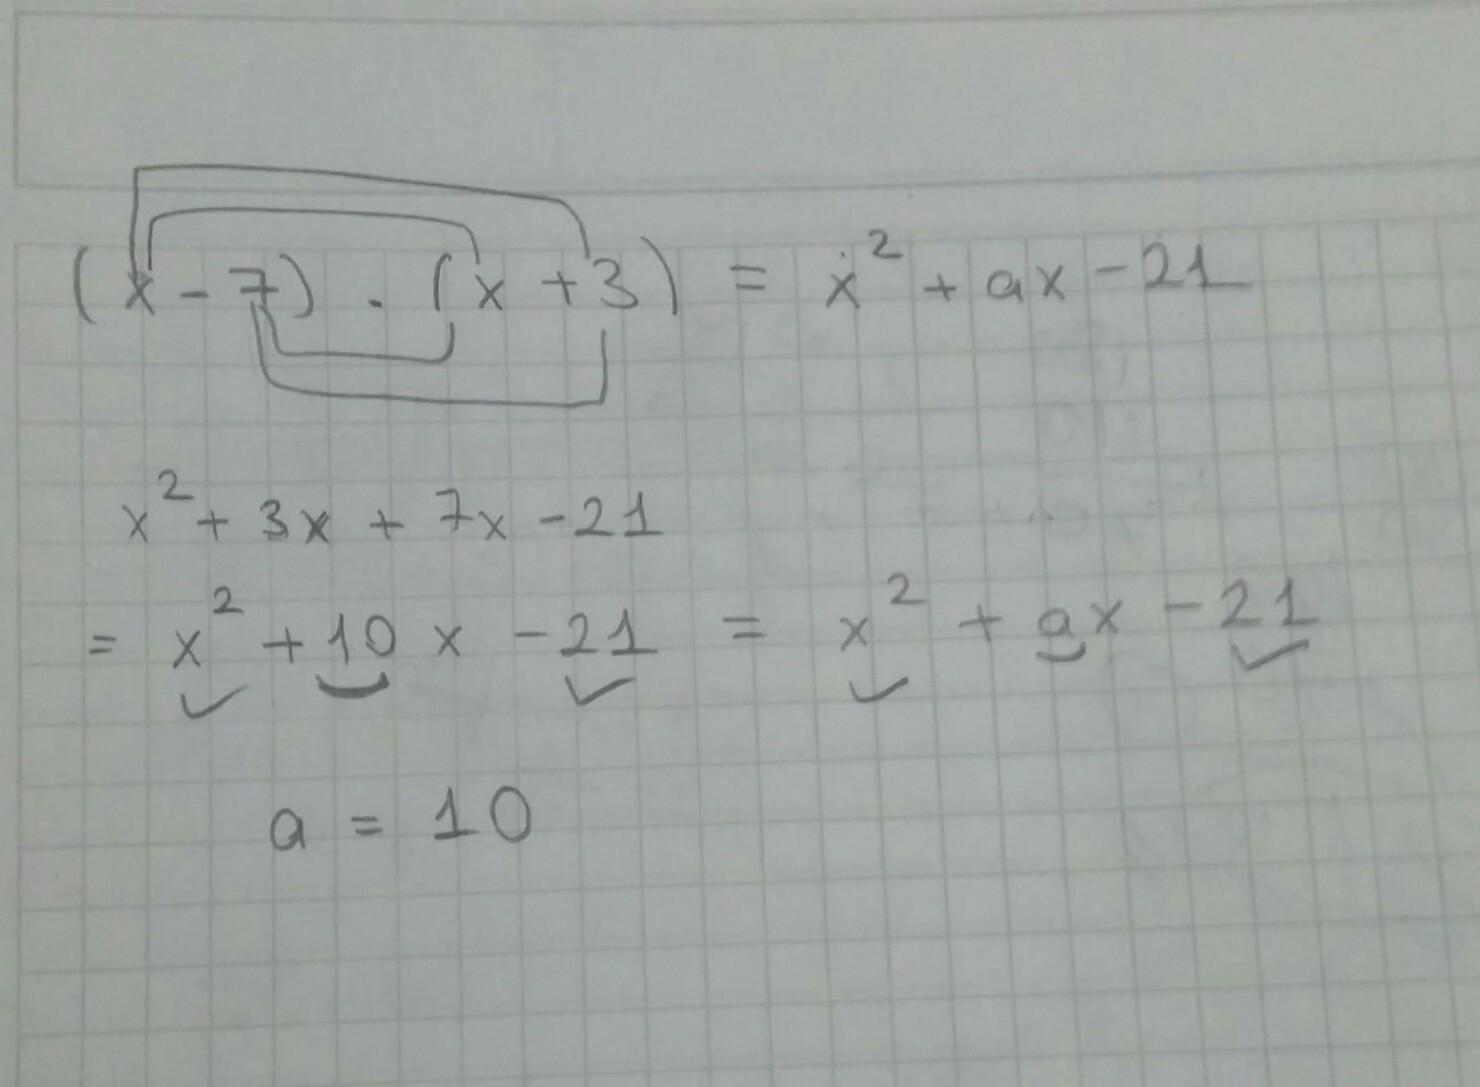 (x - 7) . (x + 3) = x² + ax - 21
x² + 3x + 7x - 21
= x² + 10 x - 21 = x² + ax - 21
a = 10